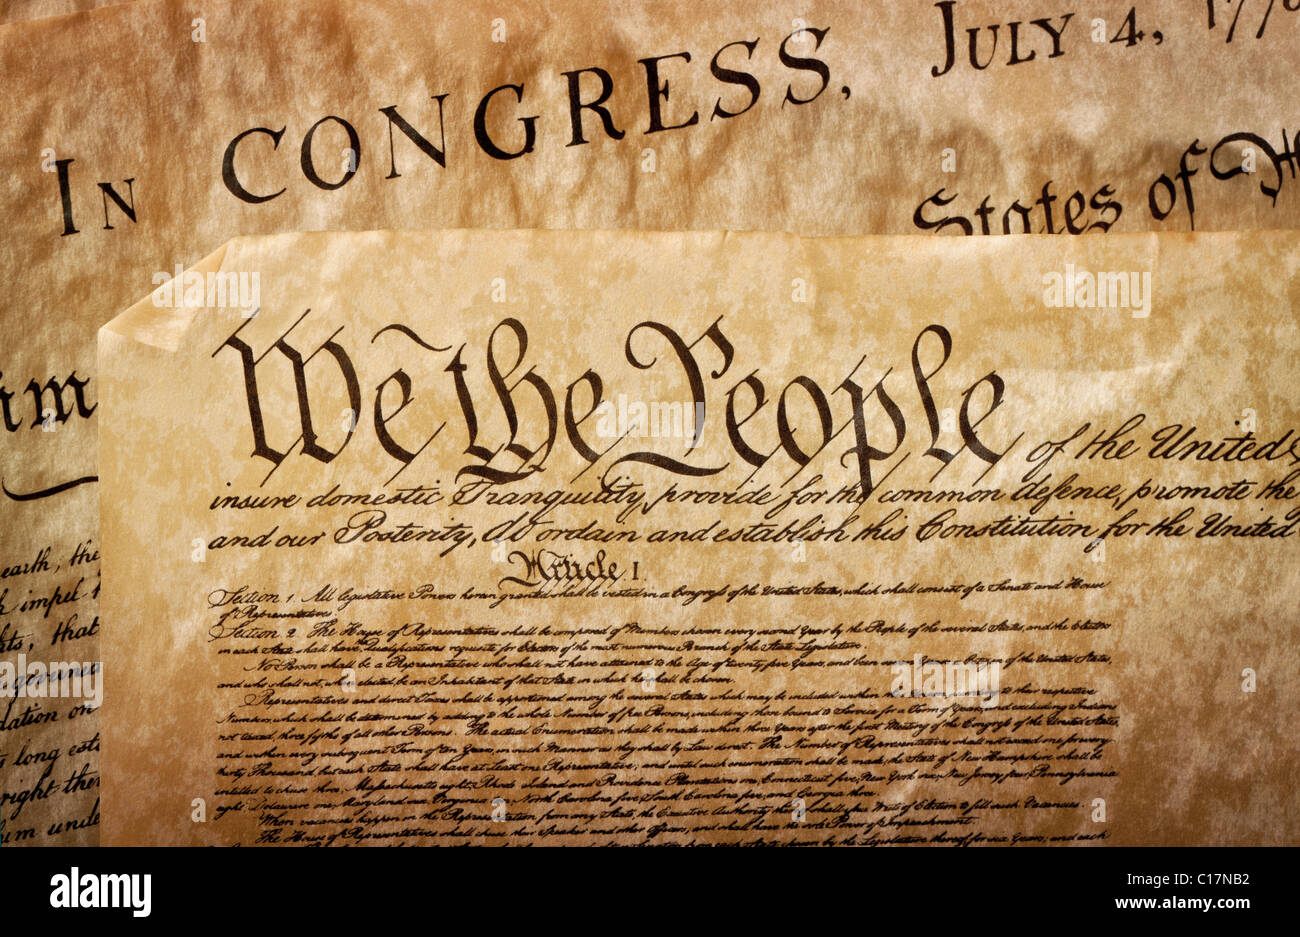 IN CONGRESS, JULY 4, 177
States of
We the People of the United
insure domestic Tranquility, provide for the common defence, promote the
and our Posterity, do ordain and establish this Constitution for the United
Article I.
Section 1. All legislative Powers herein granted shall be vested in a Congress of the United States, which shall consist of a Senate and House
of Representatives.
Section 2. The House of Representatives shall be composed of Members chosen every second Year by the People of the several States, and the Electors
in each State shall have Qualifications requisite for Electors of the most numerous Branch of the State Legislature.
No Person shall be a Representative who shall not have attained to the Age of twenty five Years, and been seven Years a Citizen of the United States,
and who shall not, when elected, be an Inhabitant of that State in which he shall be chosen.
Representatives and direct Taxes shall be apportioned among the several States which may be included within this Union, according to their respective
Numbers, which shall be determined by adding to the whole Number of free Persons, including those bound to Service for a Term of Years, and excluding Indians
not taxed, three fifths of all other Persons. The actual Enumeration shall be made within three Years after the first Meeting of the Congress of the United States,
and within every subsequent Term of ten Years, in such Manner as they shall by Law direct. The Number of Representatives shall not exceed one for every
thirty Thousand, but each State shall have at Least one Representative; and until such enumeration shall be made, the State of New Hampshire shall be
entitled to chuse three, Massachusetts eight, Rhode Island and Providence Plantations one, Connecticut five, New York six, New Jersey four, Pennsylvania
eight, Delaware one, Maryland six, Virginia ten, North Carolina five, South Carolina five, and Georgia three.
When vacancies happen in the Representation from any State, the Executive Authority thereof shall issue Writs of Election to fill such Vacancies.
The House of Representatives shall chuse their Speaker and other Officers; and shall have the sole Power of Impeachment.
earth, the
impel
that
dation on
long esta
right
um unde
alamy
Image ID: C17NB2
www.alamy.com